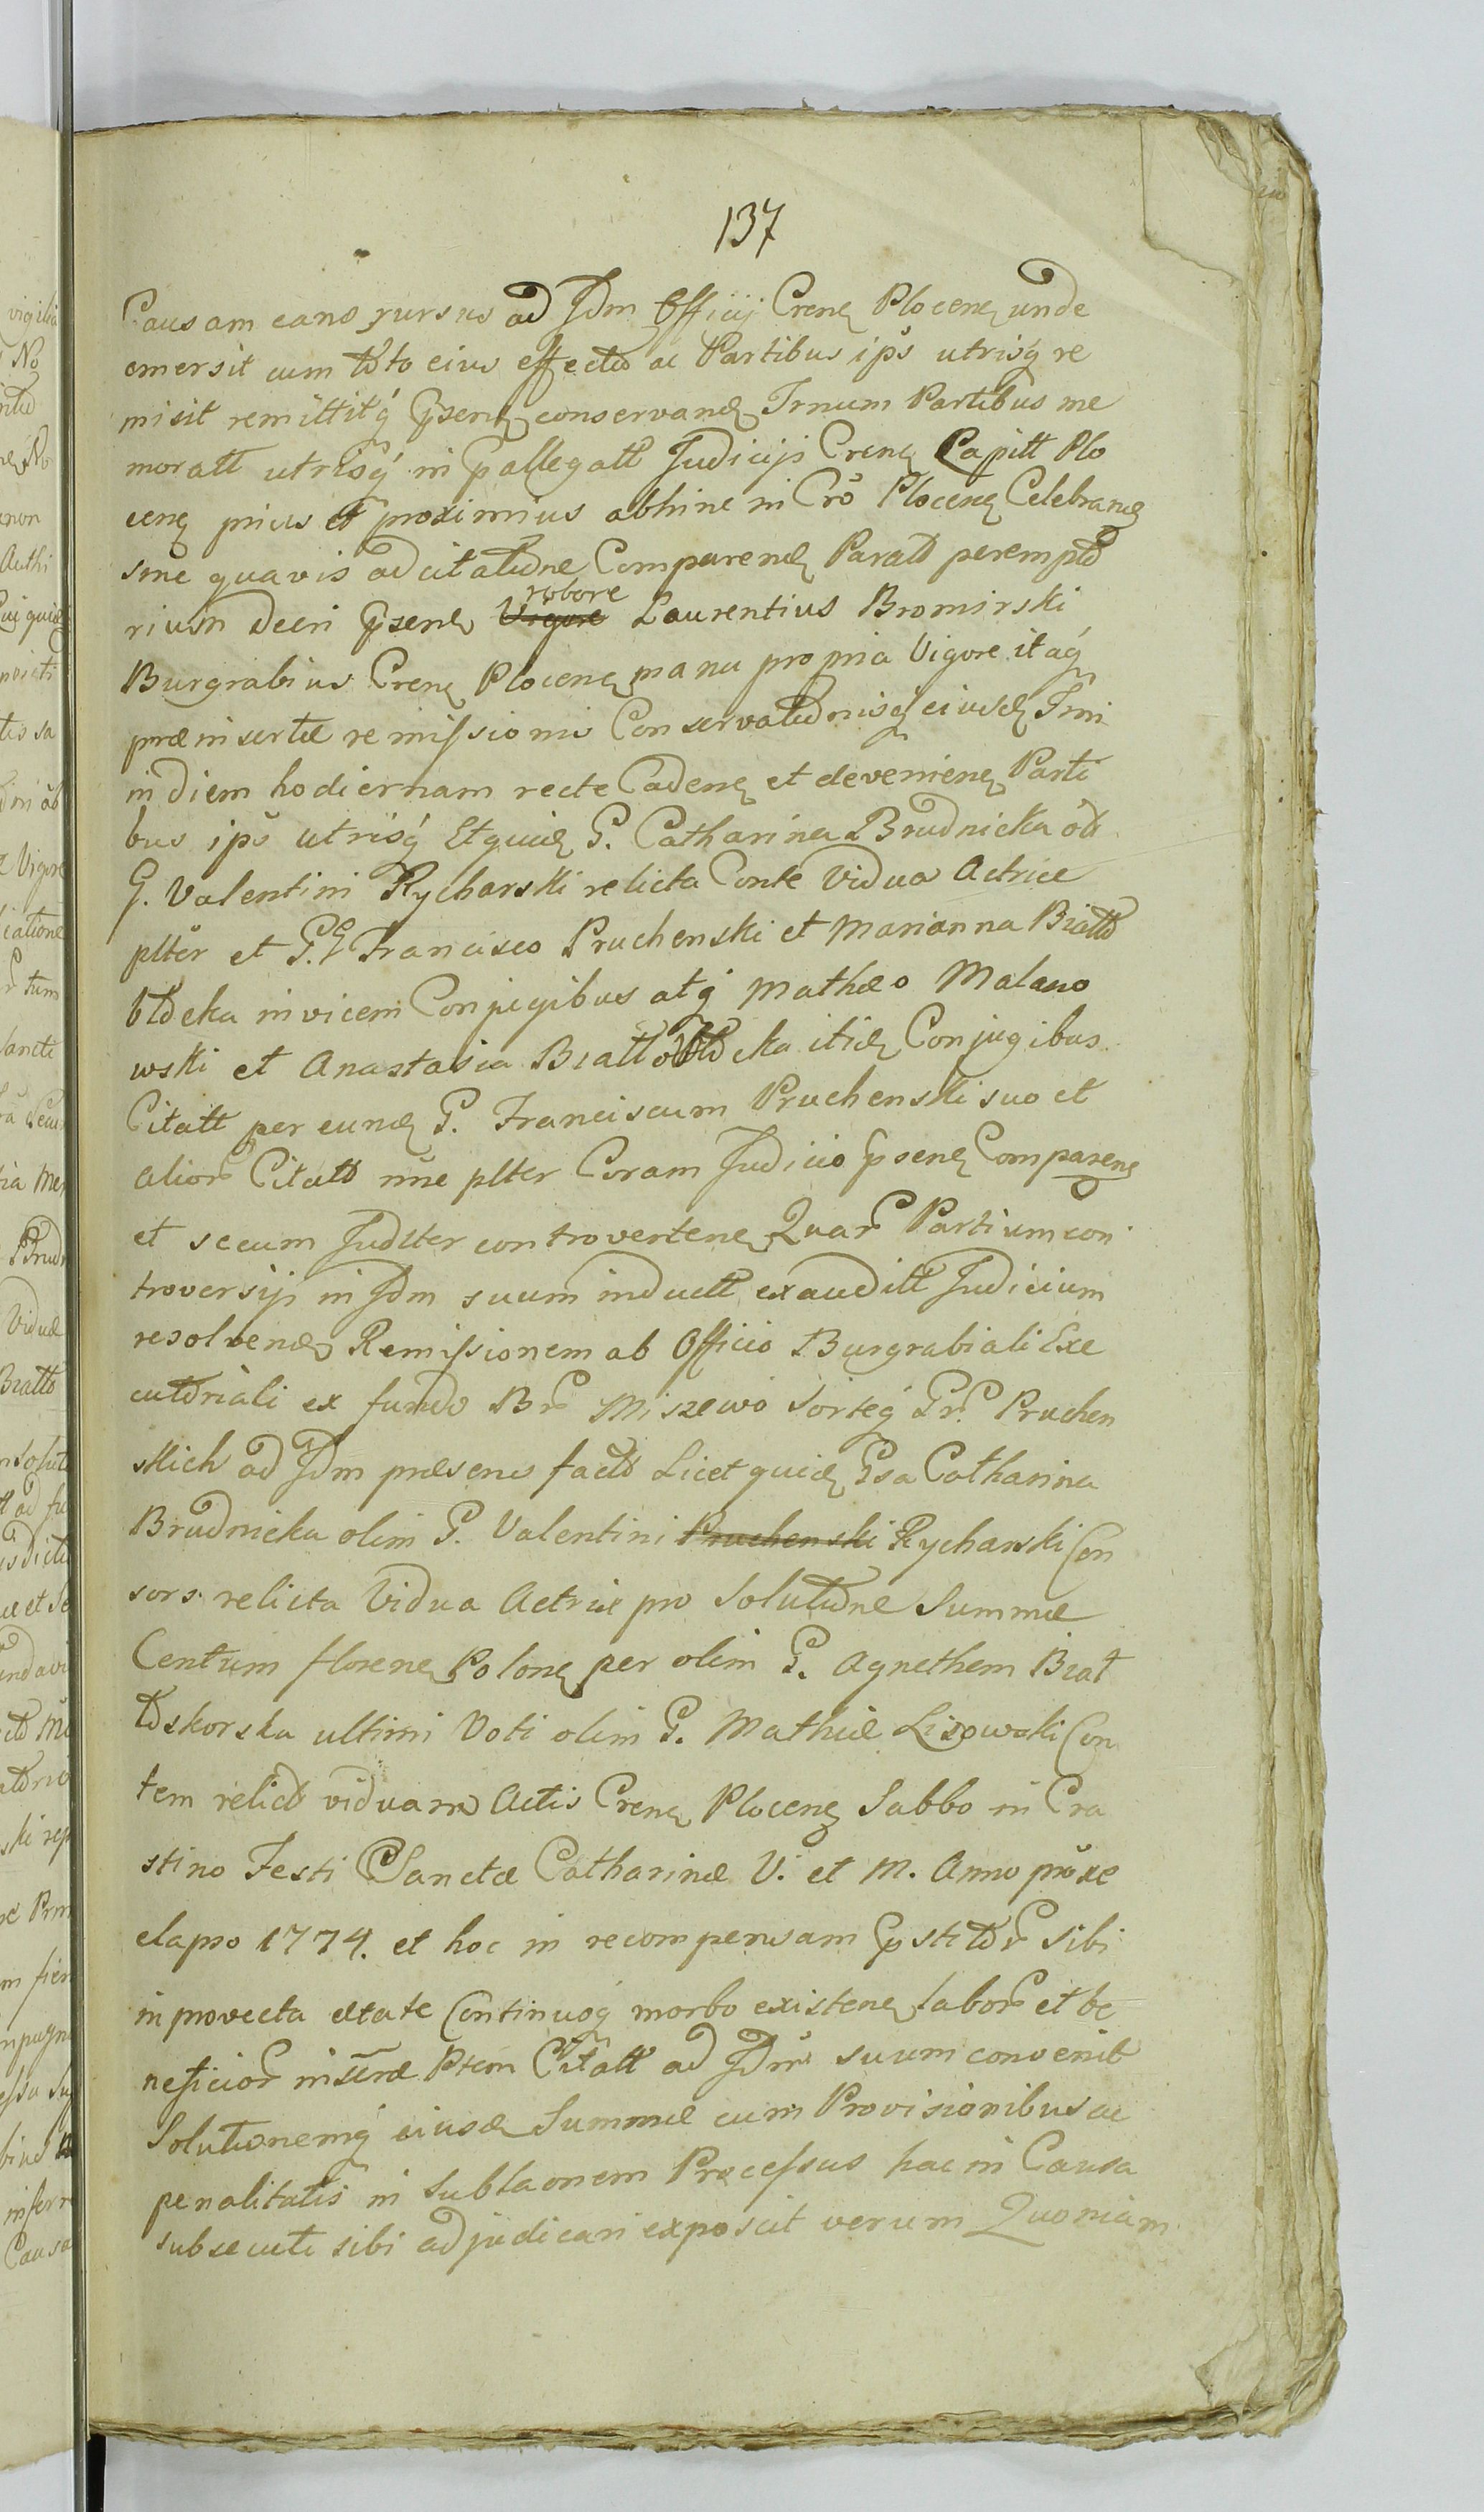 137
Causam eans rursus ad Jdm Officij Crenę Plocenę unde
emersit cum toto eius effectu ac Partibus ips utrisq́ re
misit remittitq́ Psenę conservandę Trnum Partibus me
moratt utrisq́ in Pallegatt Judicijs Crenę Capitt Plo
cenę prius et proximius abhinc in Cro Plocenę Celebrandę
sine quavis adcitatione Comparendę Parato perempto
rium decri Psenę Vigore robore Laurentius Bromirski
Burgrabius Crenę Plocenę manu propria Vigore itaq́
præinsertæ remissionis Conservationisq́ eiusdę Trni
in diem hodiernam recte Cadenę et devenienę Parti
bus ips utrisq́ Et quidę G. Catharina Brudnicka od
G. Valentini Rycharski relicta Conte Vidua Actrice
plter et G.G Francisco Pruchenski et Marianna Biatto
btocka invicem Conjugibus atq́ Mathæo Malano
wski et Anastasia Biattobtocka itidę Conjugibus
Citatt per eundę G. Franciscum Pruchenski suo et
alior Citato nne plter Coram Judicio Psenę Comparenę
et secum Judlter controvertenę Quar Partium con
troversijs in Jdm suum inductt exauditt Judicium
resolvendo Remissionem ab Officio Burgrabiali Exe
cutoriali ex fundo Br Miszewo Sorteq́ Gr. Pruchen
skich ad Jdm præsens facto Licet quidę Gsa Catharina
Brudnicka olim G. Valentini Pruchenski Rycharski Con
sors relicta Vidua Actrix pro Solutione Summæ
Centum florenę Polonę per olim G. Agnethem Biat
toskorska ultimi Voti olim G. Mathiæ Lisowski Con
tem relict viduam Actis Crenę Plocenę Sabbo in Cra
stino Festi Sanctæ Catharinæ V. et M. Anno proxe
elapso 1774. et hoc in recompensam Pstitor sibi
in provecta ætate Continuoq́ morbo existenę labor et be
neficior Ptem Citatt ad Jdm suum convenit
Solutionemq́ eiusdę Summæ cum Provisionibus ac
penalitatis in sublaonem Processus hac in Causa
subsecuti sibi adjudicari exposcit verum Quoniam